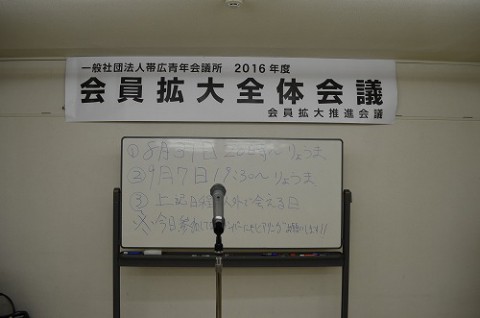 一般社団法人帯広青年会議所 2016年度
会員拡大全体会議
会員拡大推進会議
①8月31日 20時~りょうま
②9月7日19:30~りょうま
③上記日程以外で会える日
※今日参加して